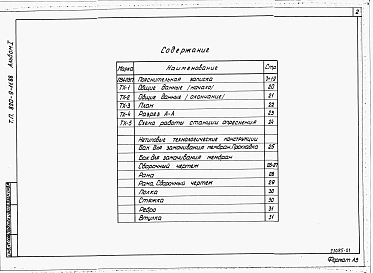 2
Т.П. 820-9-48.88 Альбом I
Содержание
Марка Наименование Стр
Пояснительная записка
ТХ-1 Общие данные (начало) 20
ТХ-2 Общие данные (окончание) 21
ТХ-3 План 22
ТХ-4 Разрез А-А 23
ТХ-5 Схема работы станции опреснения 24
Нетиповые технологические конструкции
Бак для замачивания мембран. Прокладка 25
Бак для замачивания мембран
Сборочный чертеж 26-27
Рама 28
Рама. Сборочный чертеж 29
Полка 30
Стяжка 30
Ребро 31
Втулка 31
Формат А3